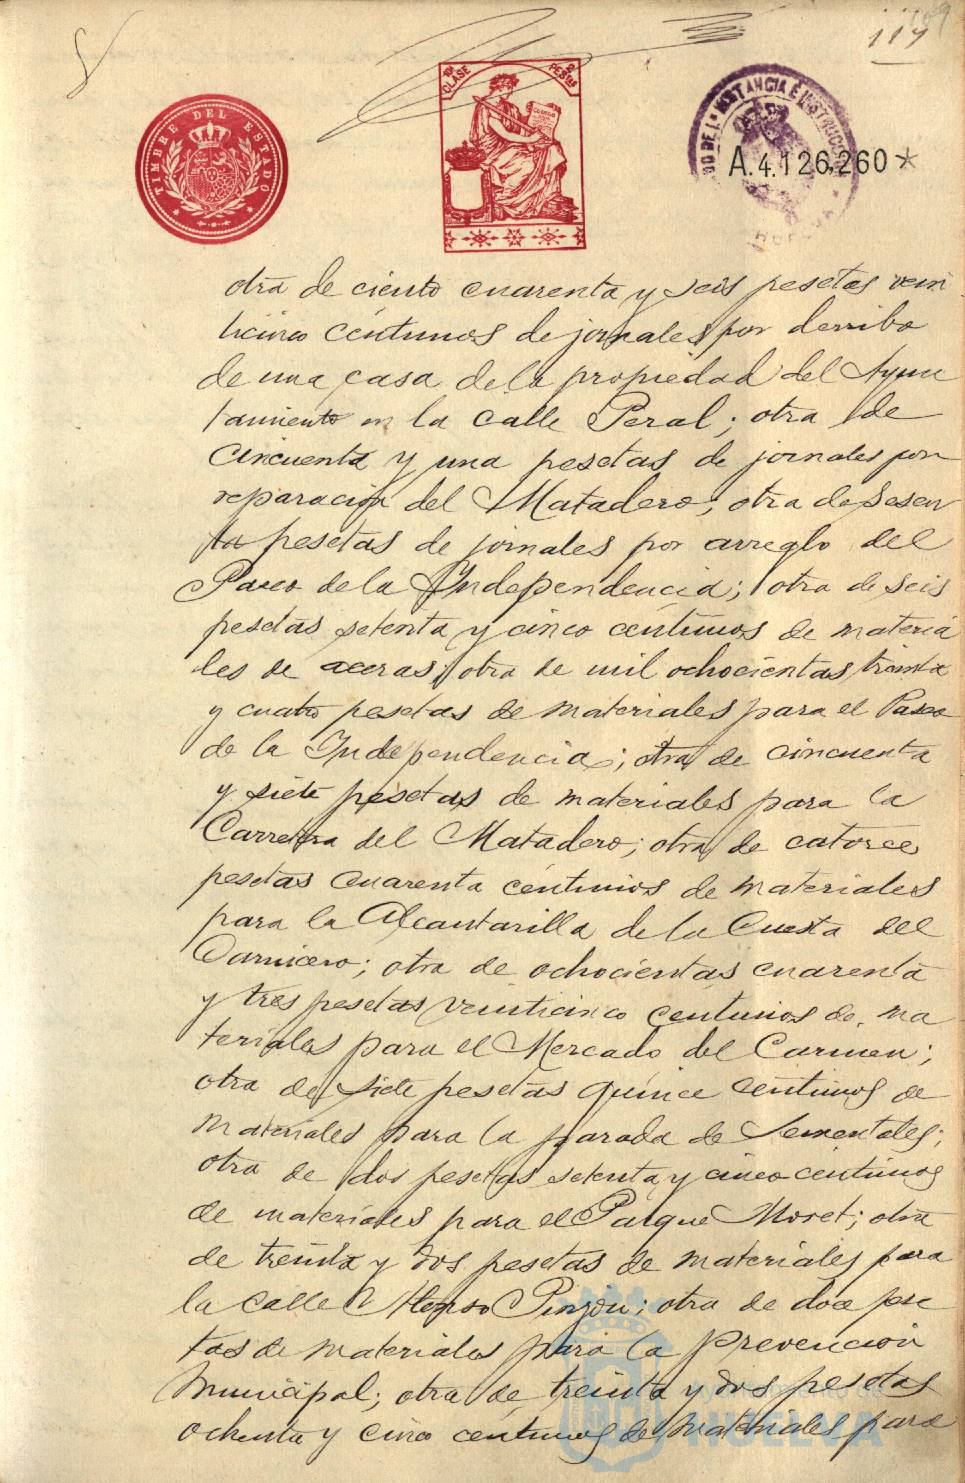 109
117
TIMBRE DEL ESTADO
10ª CLASE
2 PESETAS
DO DE 1ª INSTANCIA E INSTRUCC
HUELVA
A.4.126,260*
otra de ciento cuarenta y seis pesetas vein
ticinco céntimos de jornales por derribo
de una casa de la propiedad del Ayun
tamiento en la calle Peral; otra de
cincuenta y una pesetas de jornales por
reparación del Matadero; otra de sesen
ta pesetas de jornales por arreglo del
Paseo de la Independencia; otra de seis
pesetas setenta y cinco centimos de materia
les de aceras; otra de mil ochocientas treinta
y cuatro pesetas de materiales para el Paseo
de la Independencia; otra de cincuenta
y siete pesetas de materiales para la
Carretera del Matadero; otra de catorce
pesetas cuarenta céntimos de materiales
para la Alcantarilla de la Cuesta del
Carnicero; otra de ochocientas cuarenta
y tres pesetas veinticinco centimos de ma
teriales para el Mercado del Carmen;
otra de siete pesetas quince centimos de
materiales para la parada de Sementales;
otra de dos pesetas setenta y cinco centimos
de materiales para el Parque Moret; otra
de treinta y dos pesetas de materiales para
la calle Alonso Pinzón; otra de doce pese
tas de materiales para la prevención
Municipal; otra de treinta y dos pesetas
ochenta y cinco centimos de materiales para
Ayuntamiento de
HUELVA